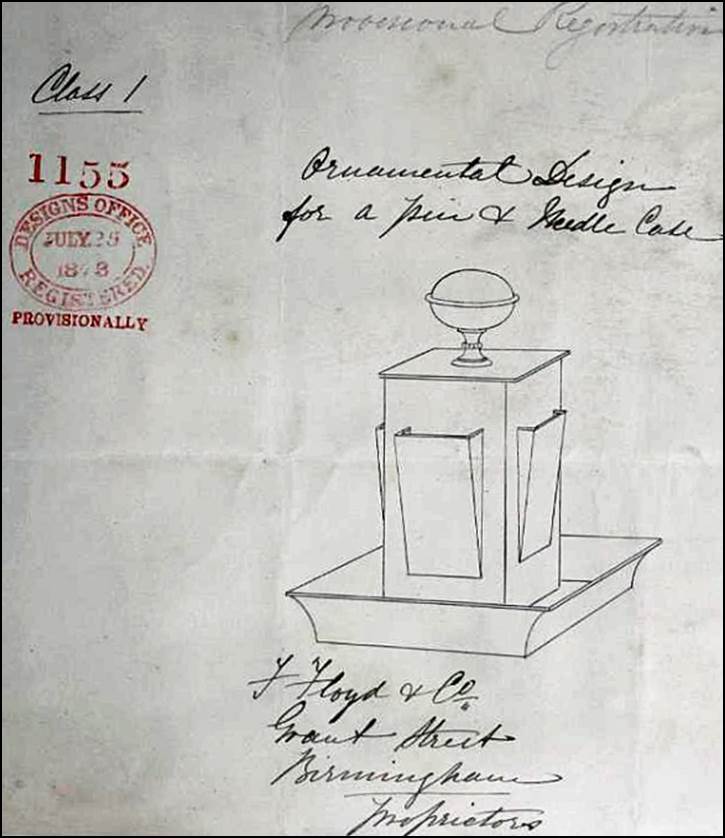 Provisional Registration
Class 1
1155
DESIGNS OFFICE
JULY.25
REGISTERED.
PROVISIONALLY
Ornamental Design
for a Pin & Needle Case
F Floyd & Co
Grant Street
Birmingham
Proprietors